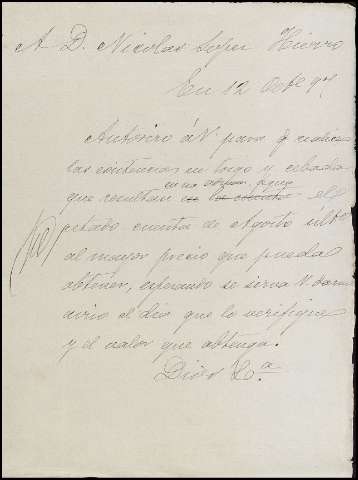 A D. Nicolas Lopez Hierro
En 12 Octe 9
Autorizo á V. para q realice
las existencias en trigo y cebada
que resultan en su
petado cuenta de Agosto ulto
al mayor precio que pueda
obtener, esperando se sirva V. darme
aviso el dia que lo verifique
y el valor que obtenga.
Dios &.a